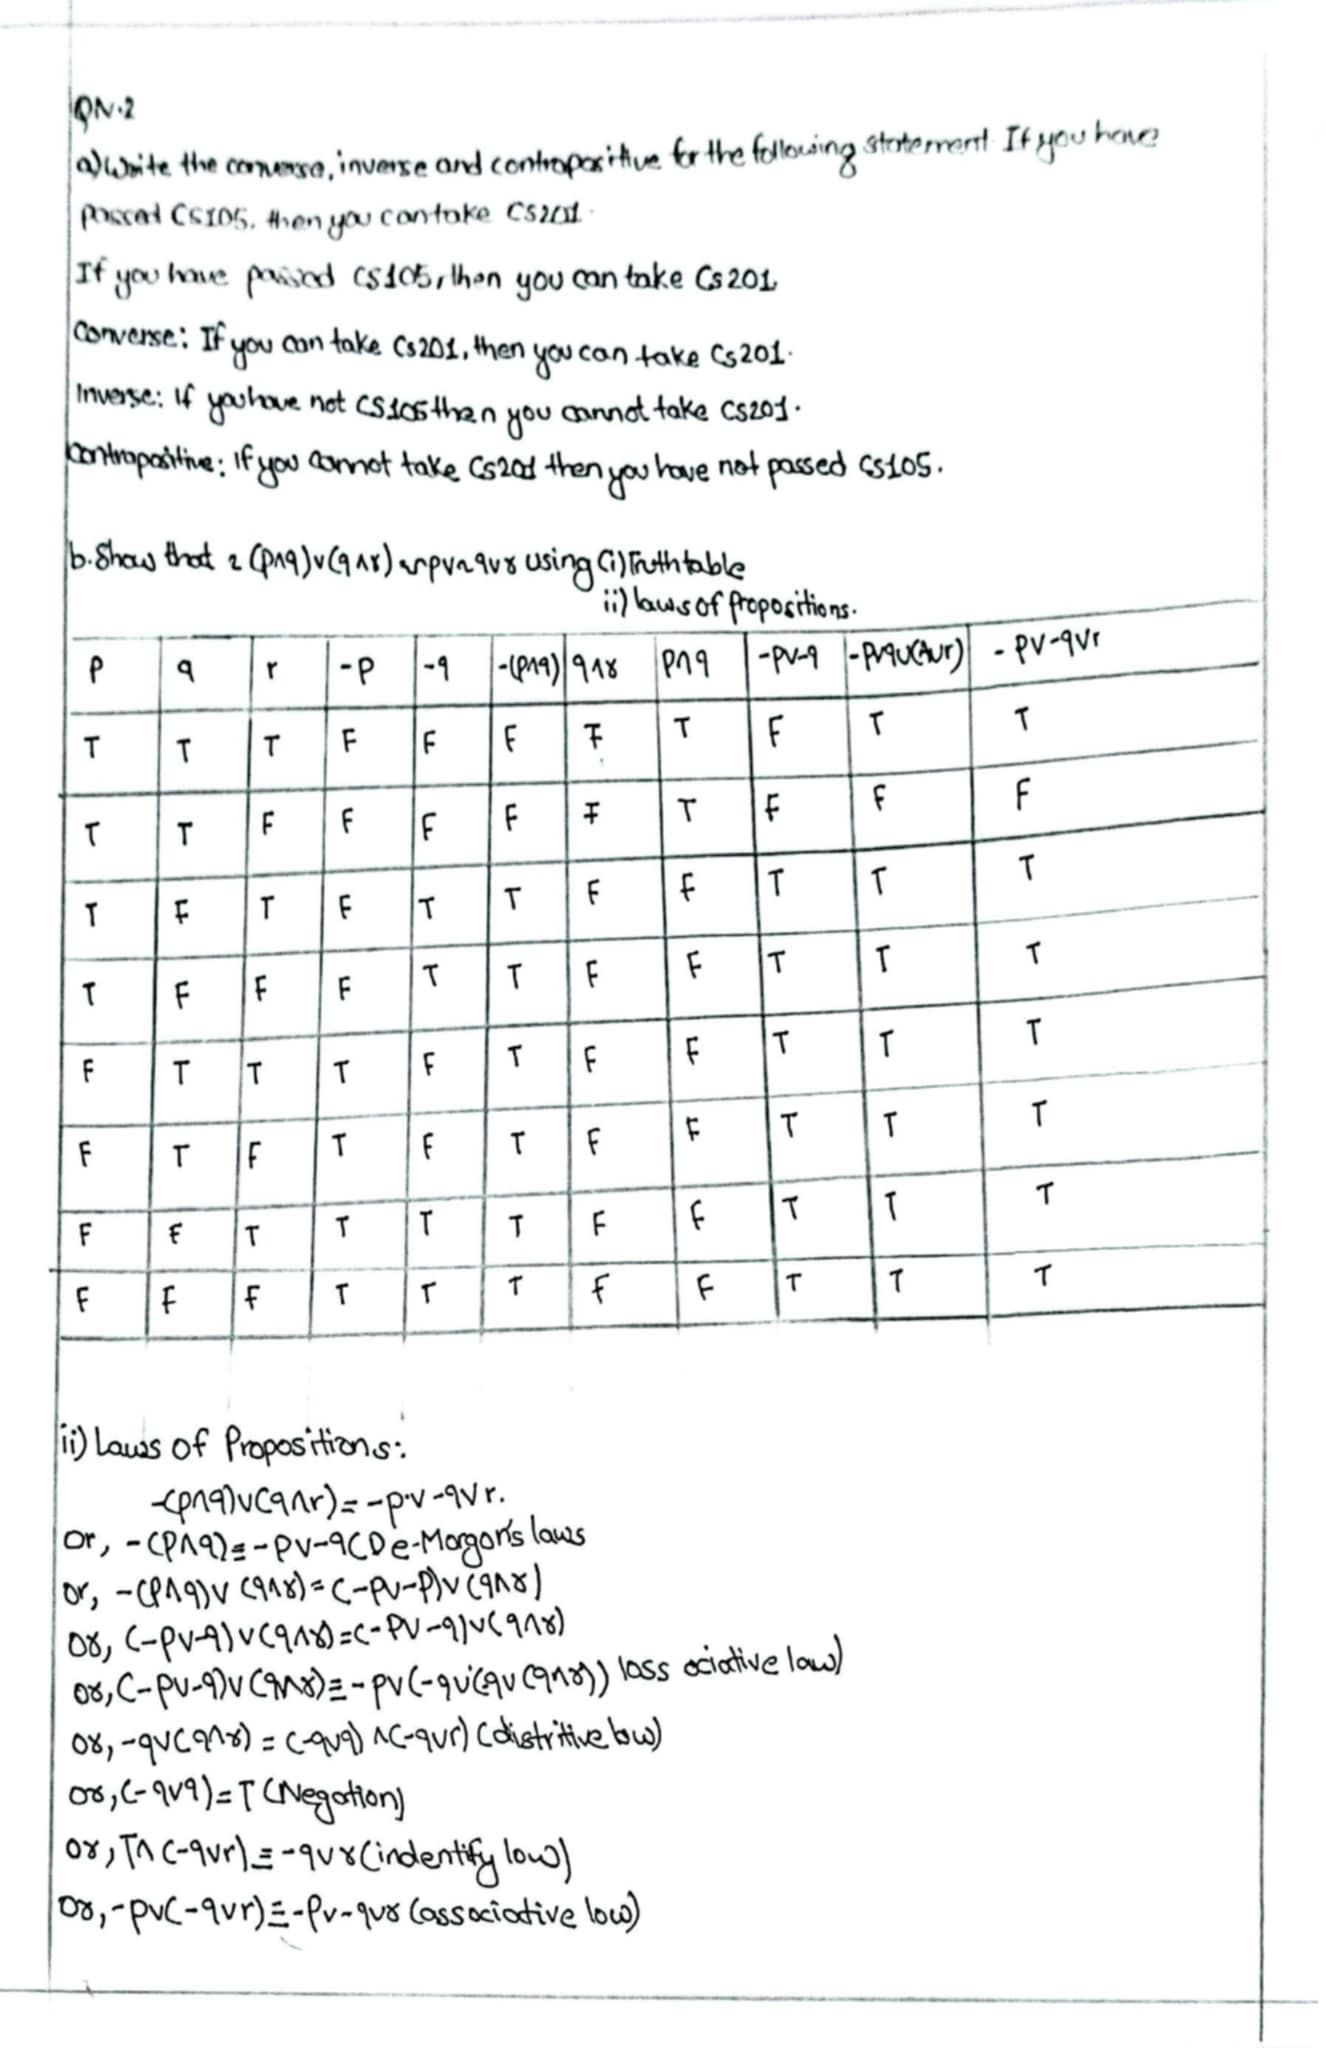 QN.2
a) Write the converse, inverse and contrapositive for the following statement If you have
passed CS105, then you can take CS201.
If you have passed CS105, then you can take Cs201
Converse: If you can take Cs201, then you can take Cs201.
Inverse: If you have not CS105 then you cannot take CS201.
Contrapositive: If you cannot take Cs201 then you have not passed Cs105.
b. Show that (p∧q)∨(q∧r) using (i) Truth table
ii) laws of propositions.
p q r -p -q -(p∧q) q∧r p∧q -p∨-q - p∨-q∨r
T T T F F F F T F T T
T T F F F F F T F F F
T F T F T T F F T T T
T F F F T T F F T T T
F T T T F T F F T T T
F T F T F T F F T T T
F F T T T T F F T T T
F F F T T T F F T T T
ii) Laws of Propositions:
-(p∧q)∨(q∧r)=-p∨-q∨r.
or, -(P∧q)≡-p∨-q(De-Morgan's laws
or, -(P∧q)∨(q∧r)=(-p∨-p)∨(q∧r)
or, (-p∨-q)∨(q∧r)=(-p∨-q)∨(q∧r)
or, (-p∨-q)∨(q∧r)≡-p∨(-q∨(q∨(q∧r)) (ass ociative law)
or, -q∨(q∧r)=(-q∨q)∧(-q∨r) (distritive law)
or, (-q∨q)=T (Negation)
or, T∧(-q∨r)≡-q∨r (indentify low)
or, -p∨(-q∨r)≡-p∨-q∨r (associative low)